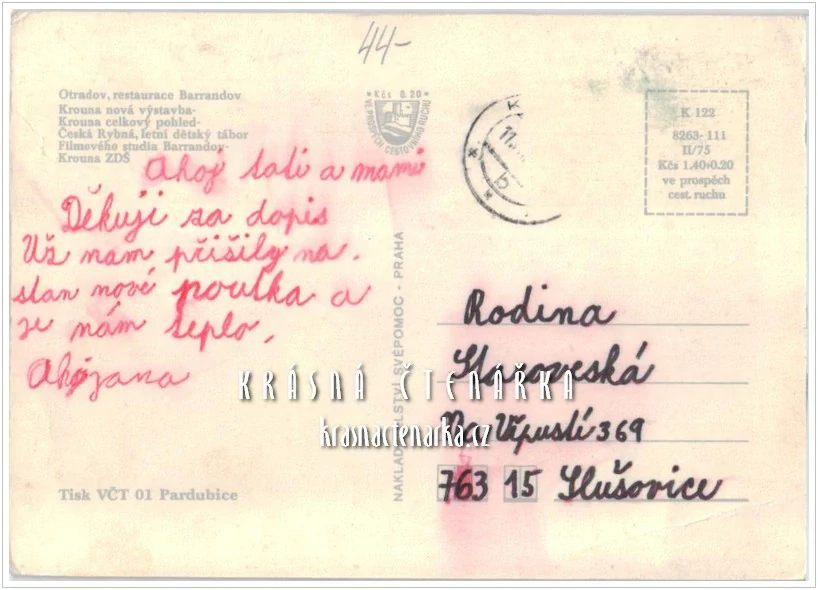 44-
Otradov, restaurace Barrandov
Krouna nová výstavba-
Krouna celkový pohled-
Česká Rybná, letní dětský tábor
Filmového studia Barrandov-
Krouna ZDŠ
Kčs 0.20
VE PROSPĚCH CESTOVNÍHO RUCHU
K 122
8263-111
II/75
Kčs 1.40+0.20
ve prospěch
cest. ruchu
Ahoj tati a mami
Děkuji za dopis
Už nam přišily na.
stan nové poutka a
je nám teplo.
Ahoj jana
NAKLADATELSTVÍ SVÉPOMOC - PRAHA
Rodina
Staroveská
Na Výpustí 369
763 15 Slušovice
KRÁSNÁ ČTENÁŘKA
krasnactenarka.cz
Tisk VČT 01 Pardubice